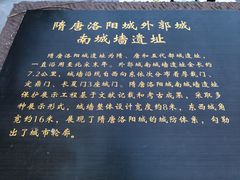 隋唐洛阳城外郭城
南城墙遗址
隋唐洛阳城遗址为隋、唐和五代都城遗址，
一直沿用至北宋末年。外郭城南城墙遗址全长约
7.2公里，城墙沿线自西向东依次分布着厚载门、
定鼎门、长夏门3座城门。隋唐洛阳城南城墙遗址
保护展示工程基于文献记载和考古成果，采取多
种展示形式，城墙整体设计宽度约8米，东西城角
宽约16米，展现了隋唐洛阳城的城防体系，勾勒
出了城市轮廓。